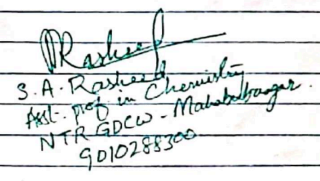 Rasheed
S. A. Rasheed
Asst. prof in Chemistry
NTR GDCW - Mahabubnagar.
9010288300